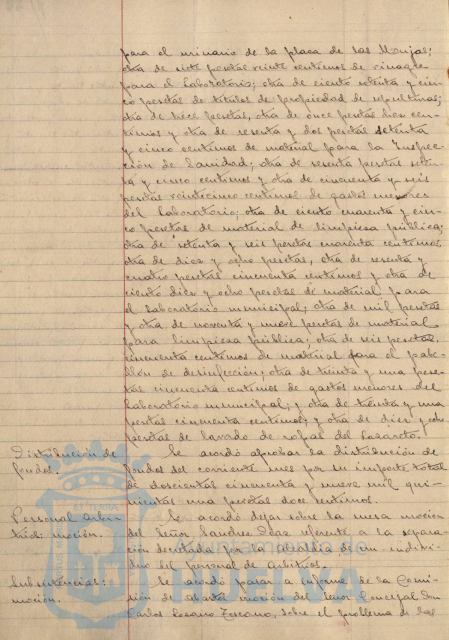 para el urinario de la plaza de las Monjas;
otra de siete pesetas veinte centimos de vinagre
para el Laboratorio; otra de ciento setenta y cin-
co pesetas de titulos de propiedad de sepulturas;
otra de trece pesetas, otra de once pesetas diez cen-
timos y otra de sesenta y dos pesetas setenta
y cinco centimos de material para la Inspec-
ción de Sanidad; otra de sesenta pesetas seten-
ta y cinco centimos y otra de cincuenta y seis
pesetas veinticinco centimos de gastos menores
del Laboratorio; otra de ciento cuarenta y cin-
co pesetas de material de limpieza pública;
otra de setenta y seis pesetas cuarenta centimos,
otra de diez y ocho pesetas, otra de sesenta y
cuatro pesetas cincuenta centimos y otra de
ciento diez y ocho pesetas de material para
el Laboratorio municipal; otra de mil pesetas
y otra de noventa y nueve pesetas de material
para limpieza pública; otra de seis pesetas
cincuenta centimos de material para el pabe-
llón de desinfección; otra de treinta y una pese-
tas cincuenta centimos de gastos menores del
Laboratorio municipal; y otra de treinta y una
pesetas cincuenta centimos; y otra de diez y ocho
pesetas de lavado de ropas del Lazareto.
Distribución de
fondos.
Se acordó aprobar la distribución de
fondos del corriente mes por su importe total
de doscientas cincuenta y nueve mil qui-
nientas una pesetas doce centimos.
Personal Arbi-
trios: moción.
Se acordó dejar sobre la mesa moción
del Señor Sanchez Diaz referente a la separa-
ción decretada por la Alcaldía de un indivi-
duo del personal de Arbitrios.
Subsistencias:
moción.
Se acordó pasar a informe de la Comi-
sión de Abastos moción del Señor Concejal Don
Carlos Lozano Toscano, sobre el problema de las